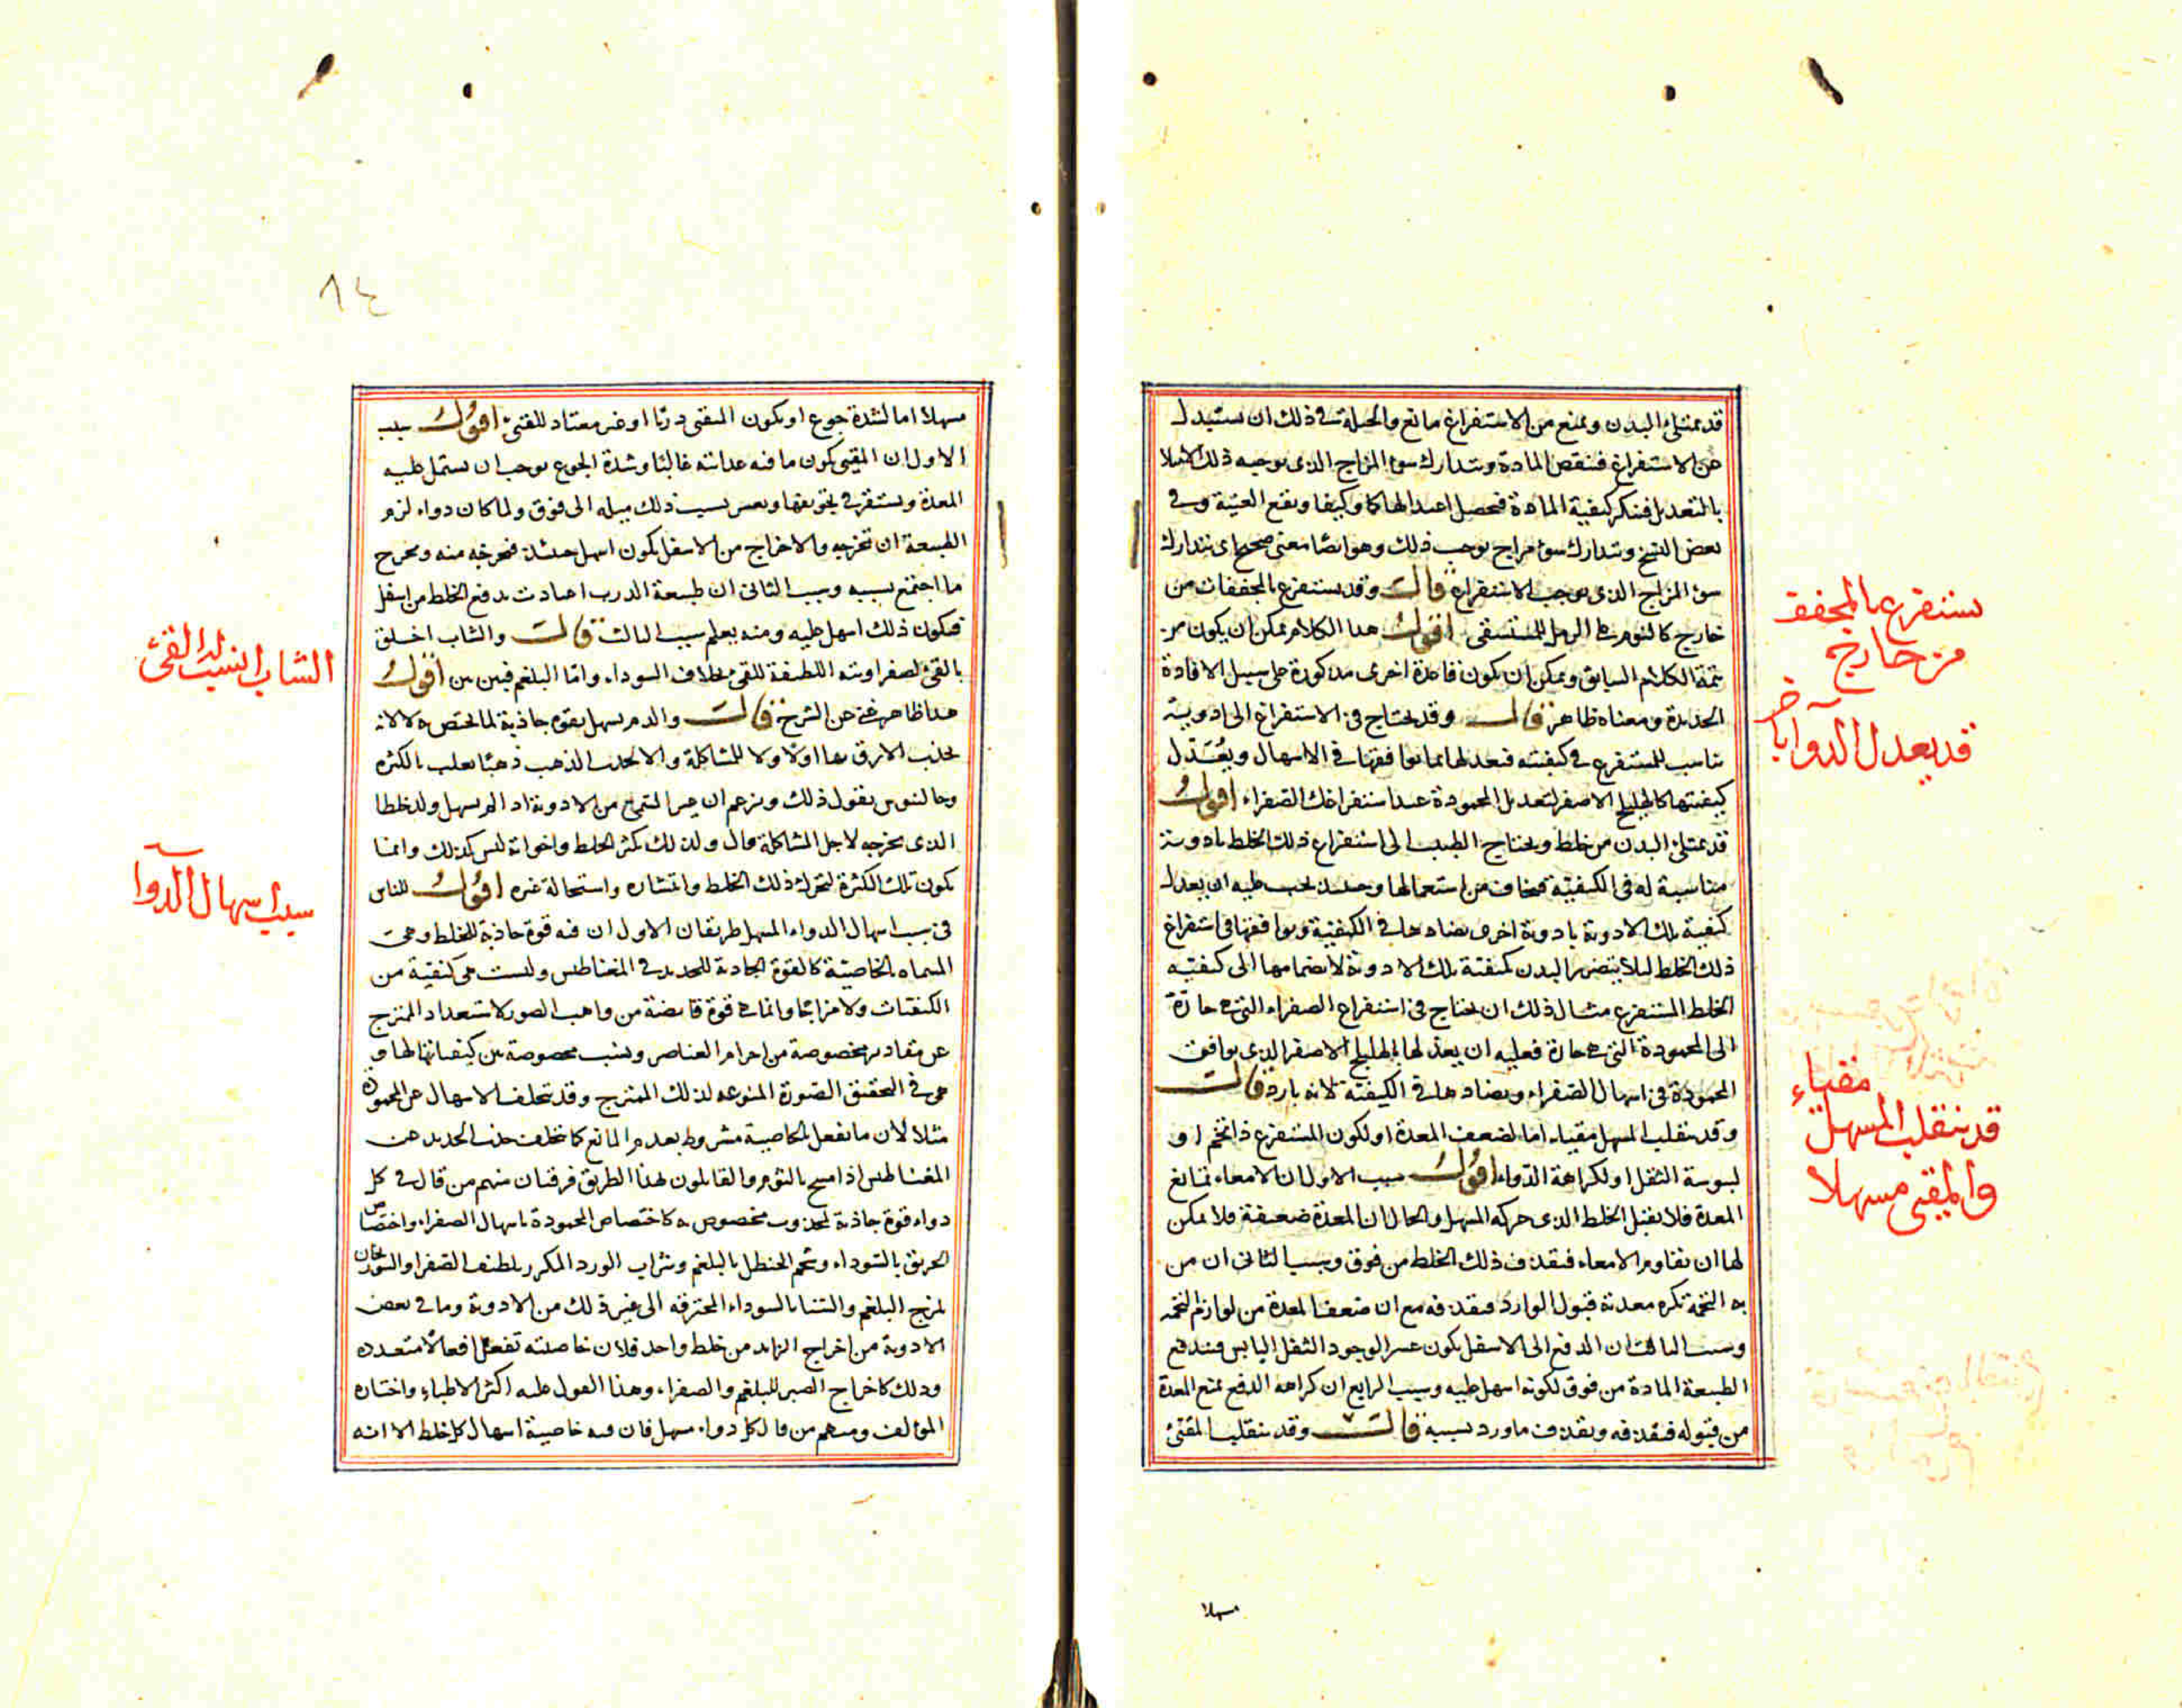 قد يمتلئ البدن ويمنع من الاستفراغ مانع والحيلة في ذلك ان يستبدل
عن الاستفراغ فننقص المادة وتدارك سوء المزاج الذي يوجبه ذلك الامتلا
بالتعديل فتنكر كيفية المادة فيحصل اعتدالها كما وكيفا ويقع الغنية وفي
بعض النسخ وتدارك سوء مزاج يوجب ذلك وهو ايضا معنى صحيح اى تتدارك
سوء المزاج الذي يوجب الاستفراغ قالـــ وقد يستفرغ بالمجففات من
خارج كالنوم في الرمل للمستسقى اقولـــ هذا الكلام يمكن ان يكون من
تتمة الكلام السابق ويمكن ان يكون فائدة اخرى مذكورة على سبيل الافادة
الجديدة ومعناه ظاهر قالـــ وقد يحتاج في الاستفراغ الى ادوية
تناسب المستفرغ في كيفيته فيعد لها بما يوافقها في الاسهال ويعدل
كيفيتها كالهليلج الاصفر لتعديل المحمودة عند استفراغك الصفراء اقولـــ
قد يمتلئ البدن من خلط ويحتاج الطبيب الى استفراغ ذلك الخلط بادوية
مناسبة له في الكيفية فيخاف من استعمالها وحينئذ يجب عليه ان يعدل
كيفية تلك الادوية بادوية اخرى تضادها في الكيفية ويوافقها في استفراغ
ذلك الخلط ليلا يتضرر البدن بكيفية تلك الادوية لانضمامها الى كيفية
الخلط المستفرغ مثال ذلك ان يحتاج في استفراغ الصفراء التي هي حارة
الى المحمودة التي هي حارة فعليه ان يعد لها بالهليلج الاصفر الذي يوافق
المحمودة في اسهال الصفراء ويضادها في الكيفية لانه بارد قالـــ
وقد ينقلب المسهل مقيئا، اما لضعف المعدة او لكون المستفرغ ذا تخم او
ليبوسة الثفل او لكراهة الدواء اقولـــ سبب الاول ان الامعاء تمانع
المعدة فلا تقبل الخلط الذي حركه المسهل والحال ان المعدة ضعيفة فلا يمكن
لها ان تقاوم الامعاء فيقذف ذلك الخلط من فوق وسبب الثاني ان من
به التخمة تكره معدته قبول الوارد فيقذفه مع ان ضعف المعدة من لوازم التخمة
وسبب الثالث ان الدفع الى الاسفل يكون عسرا لوجود الثفل اليابس فيندفع
الطبيعة المادة من فوق لكونه اسهل عليه وسبب الرابع ان كراهة الدفع تمنع المعدة
من قبوله فيقذفه ويقذف ما ورد بسببه قالـــ وقد ينقلب المقيئ
مسهلا
يستفرغ بالمجفف
من خارج
قد يعدل الدوا بآخر
مقياء
قد ينقلب المسهل
والمقيئ مسهلا
٨٤
مسهلا اما لشدة جوع او يكون المتقيئ ذربا او غير معتاد للقيئ اقولـــ سبب
الاول ان المقيئ يكون ما فيه غذائية غالبا وشدة الجوع يوجب ان يشتمل عليه
المعدة ويستقر في تجويفها ويعسر بسبب ذلك ميله الى فوق ولما كان دواء لزم
الطبيعة ان تخرجه والاخراج من الاسفل يكون اسهل حينئذ فيخرجه منه ويخرج
ما اجتمع بسببه وسبب الثاني ان طبيعة الذرب اعتادت بدفع الخلط من اسفل
فيكون ذلك اسهل عليه ومنه يعلم سبب الثالث قالـــ والشاب اخلق
بالقيئ لصفراويته اللطيفة للقيئ بخلاف السوداء واما البلغم فبين بين اقولـــ
هذا ظاهر غني عن الشرح قالـــ والدم يسهل بقوة جاذبة لما يختص به لا لانه
يجذب الارق بها اولا ولا للمشاكلة والا لجذب الذهب ذهبا يغلب بالكثرة
وجالينوس يقول ذلك ويزعم ان غير السمي من الادوية اذا لم يسهل ولد خلطا
الذي يخرجه لاجل المشاكلة قال ولذلك يكثر الخلط واخوانه ليس كذلك وانما
يكون تلك الكثرة لتحرك ذلك الخلط وانتشاره واستحالة غيره اقولـــ للناس
في سبب اسهال الدواء المسهل طريقان الاول ان فيه قوة جاذبة للخلط وهي
المسماه بالخاصية كالقوة الجاذبة للحديد في المغناطيس وليست هي كيفية من
الكيفيات ولا مزاجا وانما هي قوة فايضة من واهب الصور لاستعداد الممتزج
عن مقادير مخصوصة من اجرام العناصر ونسب مخصوصة بين كيفياتها لها و
هي في التحقيق الصورة المنوعه لذلك الممتزج وقد يتخلف الاسهال عن المحمودة
مثلا لان ما يفعل بالخاصية مشروط بعدم المانع كما تخلف جذب الحديد عن
المغناطيس اذا مسح بالثوم والقايلون لهذا الطريق فرقتان منهم من قال في كل
دواء قوة جاذبة لمجذوب مخصوص به كاختصاص المحمودة باسهال الصفراء واختصاص
الخربق بالسوداء وشحم الحنطل بالبلغم وشراب الورد المكرر بلطيف الصفرا والسورنجان
لمزج البلغم والسنا بالسوداء المحترقه الى غير ذلك من الادوية وما في بعض
الادوية من اخراج الزايد من خلط واحد فلان خاصيته تفعل افعالا متعدده
وذلك كاخراج الصبر للبلغم والصفراء وهذا القول عليه اكثر الاطباء واختاره
المؤلف ومنهم من قال كل دواء مسهل فان فيه خاصية اسهال كل خلط الا انه
الشاب انسب له القيئ
سبب اسهال الدوا